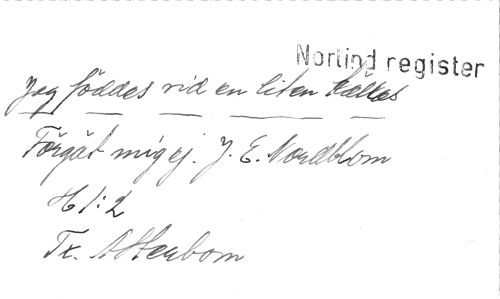 Norlind register
Jag föddes vid en liten källas
Förgät mig ej. J. E. Nordblom
H 1:2
Tx. Atterbom